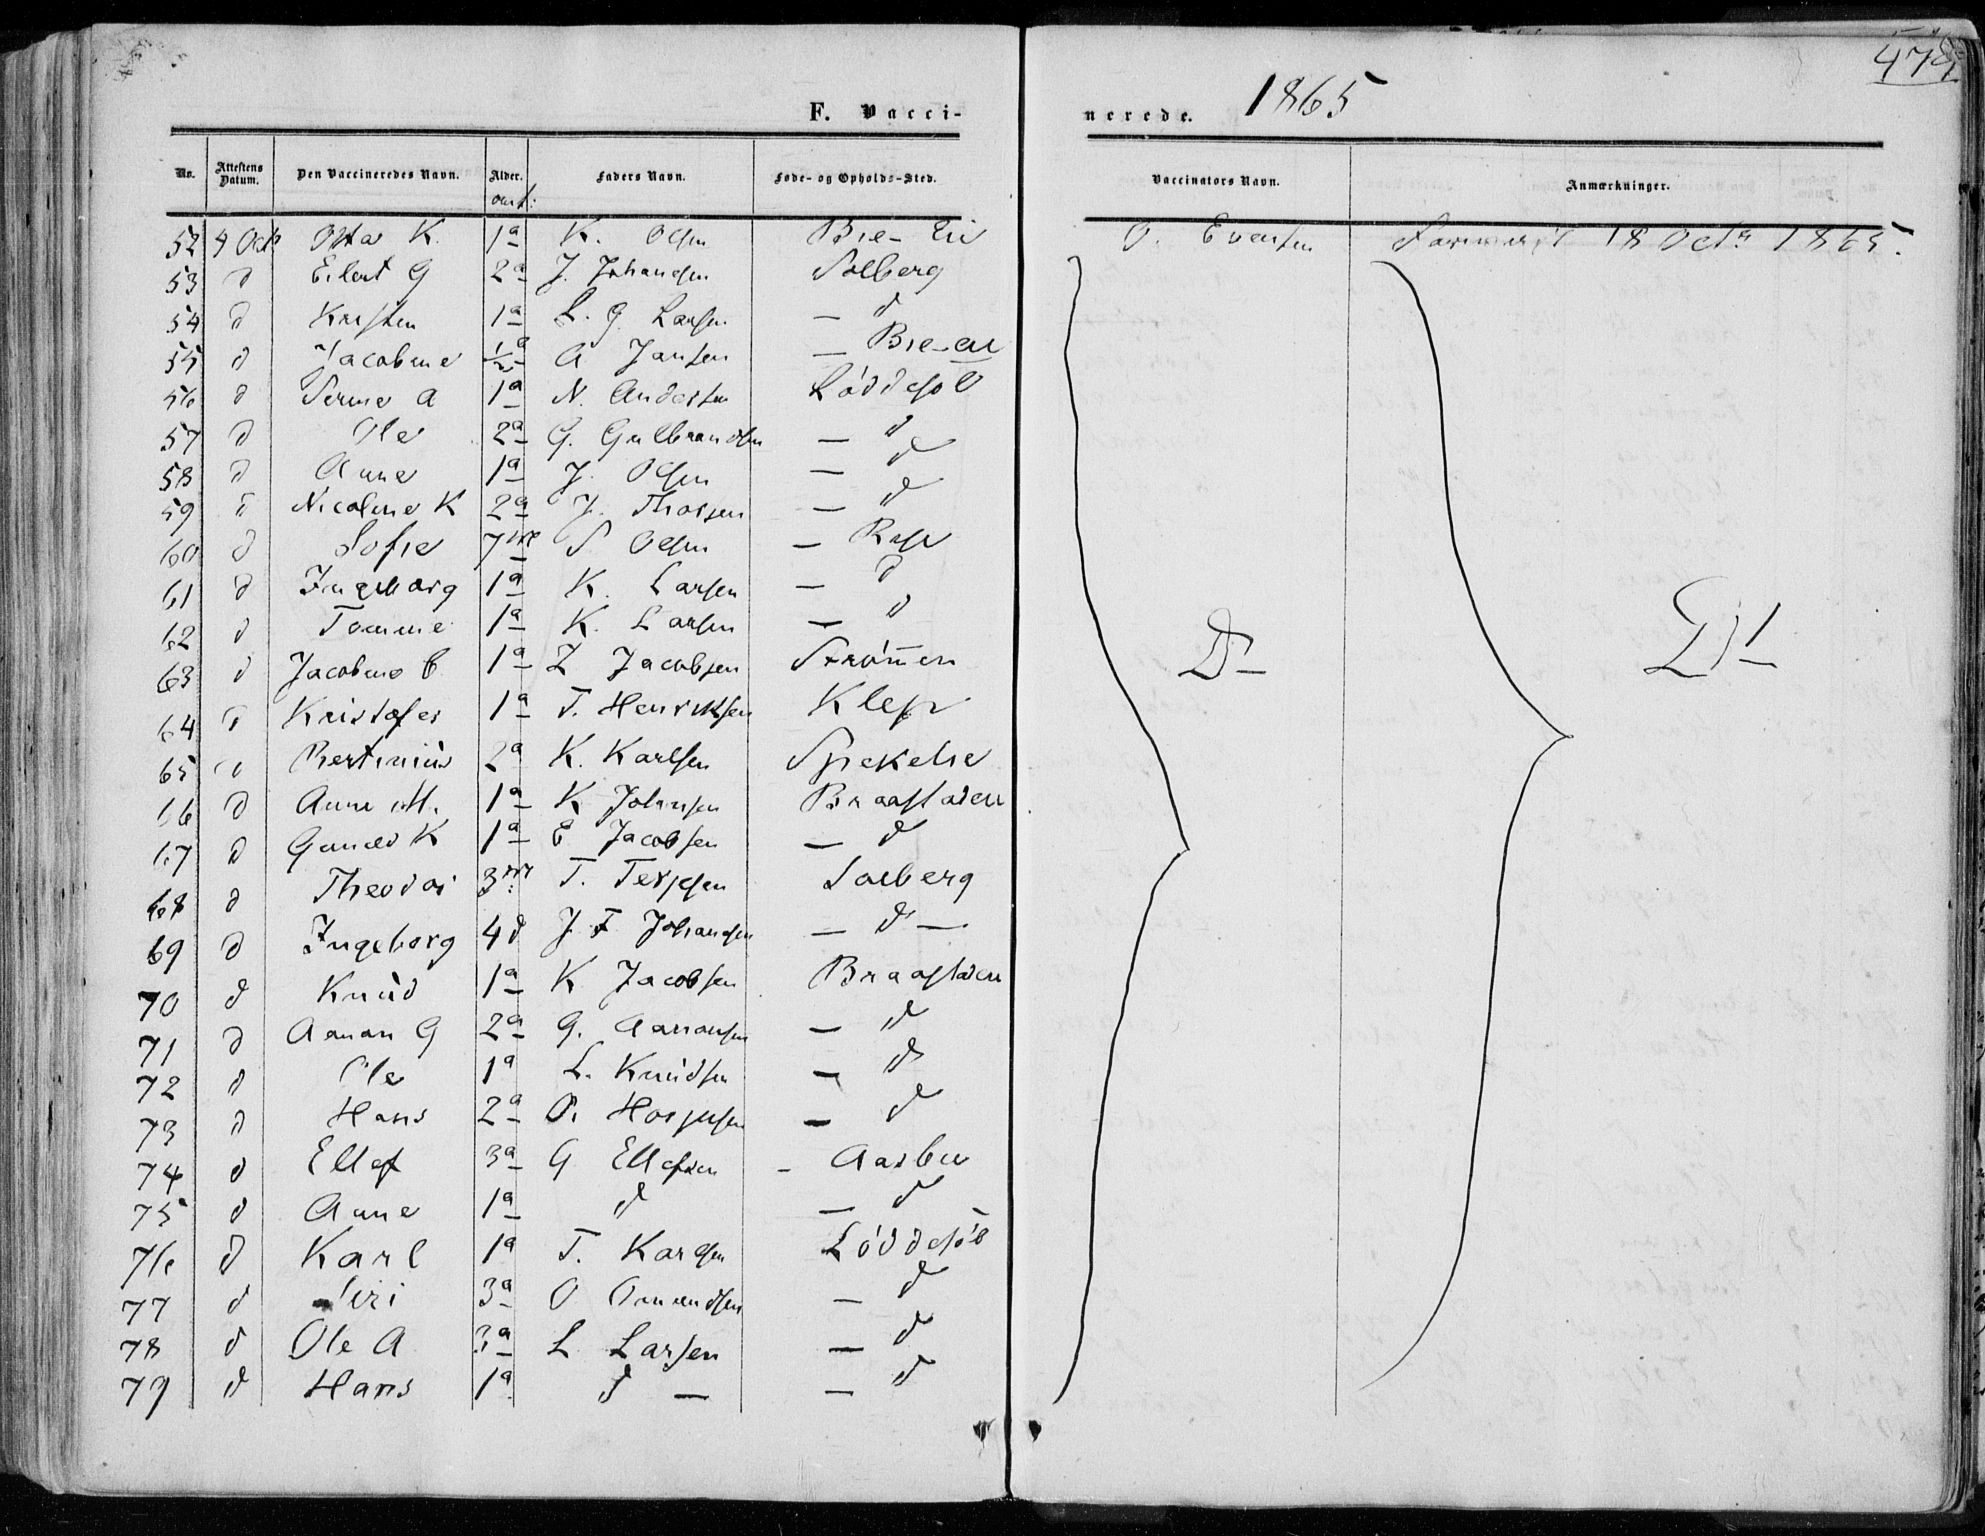 1865
F. Vacci- nerede.
No. Attestens Datum. Den Vaccineredes Navn. Alder. Faders Navn. Føde- og Opholds-Sted. Vaccinators Navn. Anmærkninger.
omt:
52 4 Octr K. 1a K. Olsen Bie-Eie O. Evensen 18 Octr 1865.
53 d Eilert G 2a J. Johansen Solberg
54 d Kristen 1a L. G. Larsen — d
55 d Jacobine ½a A Jansen — Bie-eie
56 d A 1a N. Andersen Løddesøl
57 d Ole 2a G. Gulbrandsen — d
58 d Anne 1a J. Olsen — d
59 d Nicoline K 2a J. Thorsen — d
60 d Sofie 7 S Olsen —
61 d Ingeborg 1a K. Larsen — d
62 d Tomine 1a K. Larsen — d
63 d Jacobine C 1a Z Jacobsen Strømmen
64 d Kristofer 1a T. Henriksen Klep
65 d Bertinius 2a K. Karlsen
66 d Anne M. 1a K Johnsen Braastaden
67 d K 1a E Jacobsen — d
68 d Theodor 3 T. Terjesen Solberg
69 d Ingeborg 4d J. F Johansen — d —
70 d Knud 1a K Jacobsen Braastaden
71 d Aanon G 2a G. Aanonsen — d
72 d Ole 1a L. Knudsen — d
73 d Hans 2a — d
74 d Ellef 3a G Ellefsen - Aasbie
75 d Anne 1a d — d
76 d Karl 1a T. Løddesøl
77 d Siri 3a O Omundsen — d
78 d Ole A 3a L Larsen — d
79 d Hans 1a d — — d
D—